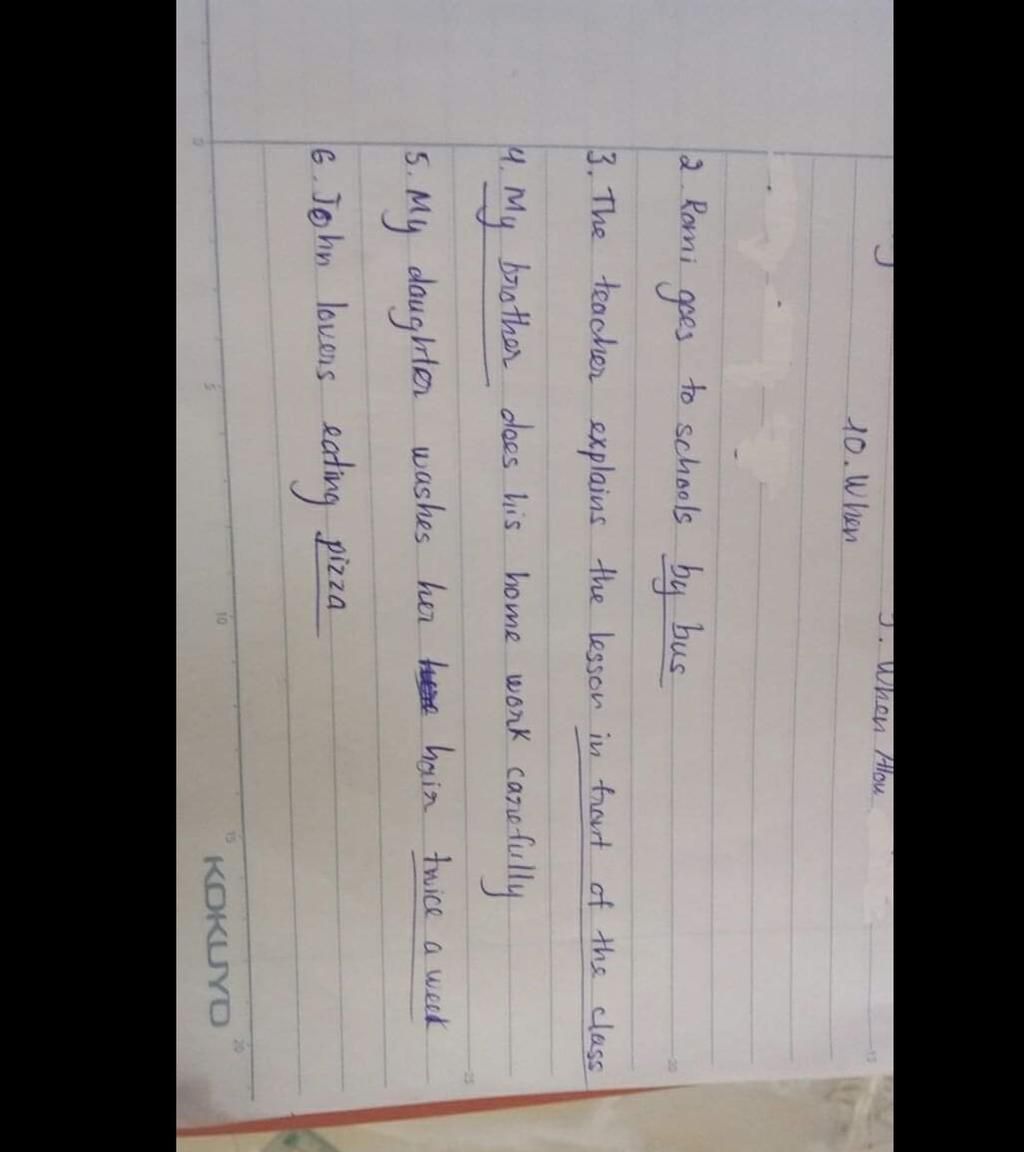 10. When
. When Alou
2. Romi goes to schools by bus
3. The teacher explains the lesson in front of the class
4. My brother does his home work carefully
5. My daughter washes her hair twice a week
6. John lovers eating pizza
0 5 10 15 20
KOKUYO
15
20
25